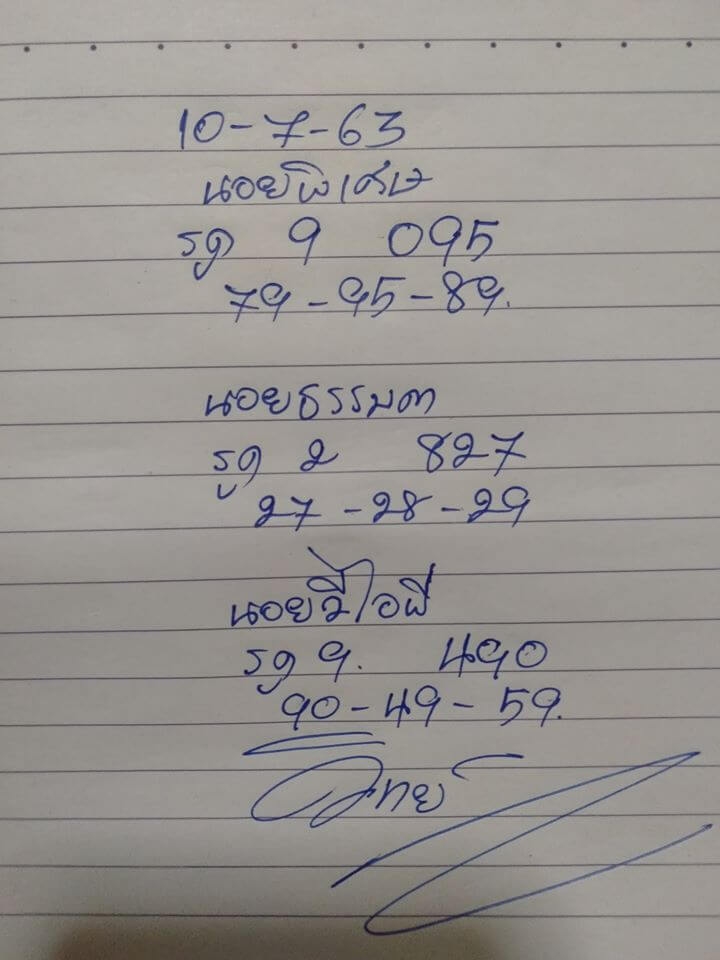 10-7-63
นอยพิเศษ
รูด 9 095
79-95-89.
นอยธรรมดา
รูด 2 827
27-28-29
นอยวีไอพี
รูด 9. 490
90-49-59.